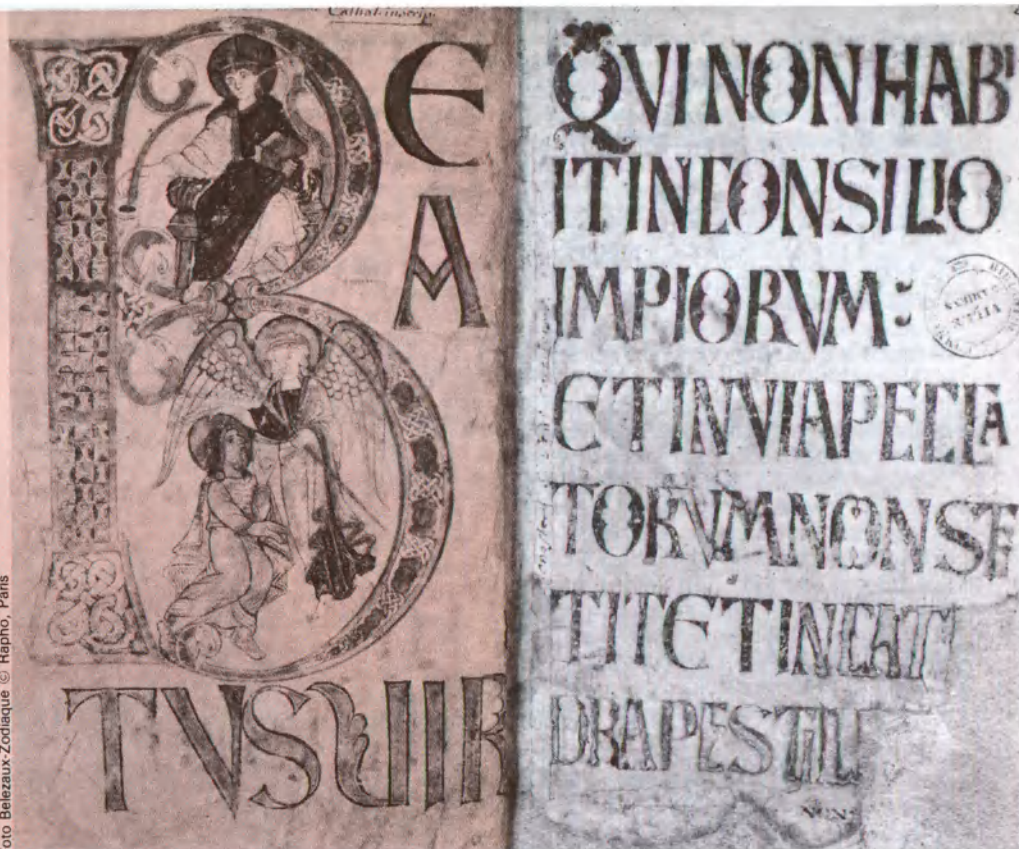 Cathal. inscrip.
B E
A
TVS VIR
QVI NON HAB
IT IN CONSILIO
IMPIORVM:
ET IN VIA PECCA
TORVM NON STE
TIT ET IN CAT
DRA PESTIL
oto Belezaux-Zodiaque © Rapho, Paris